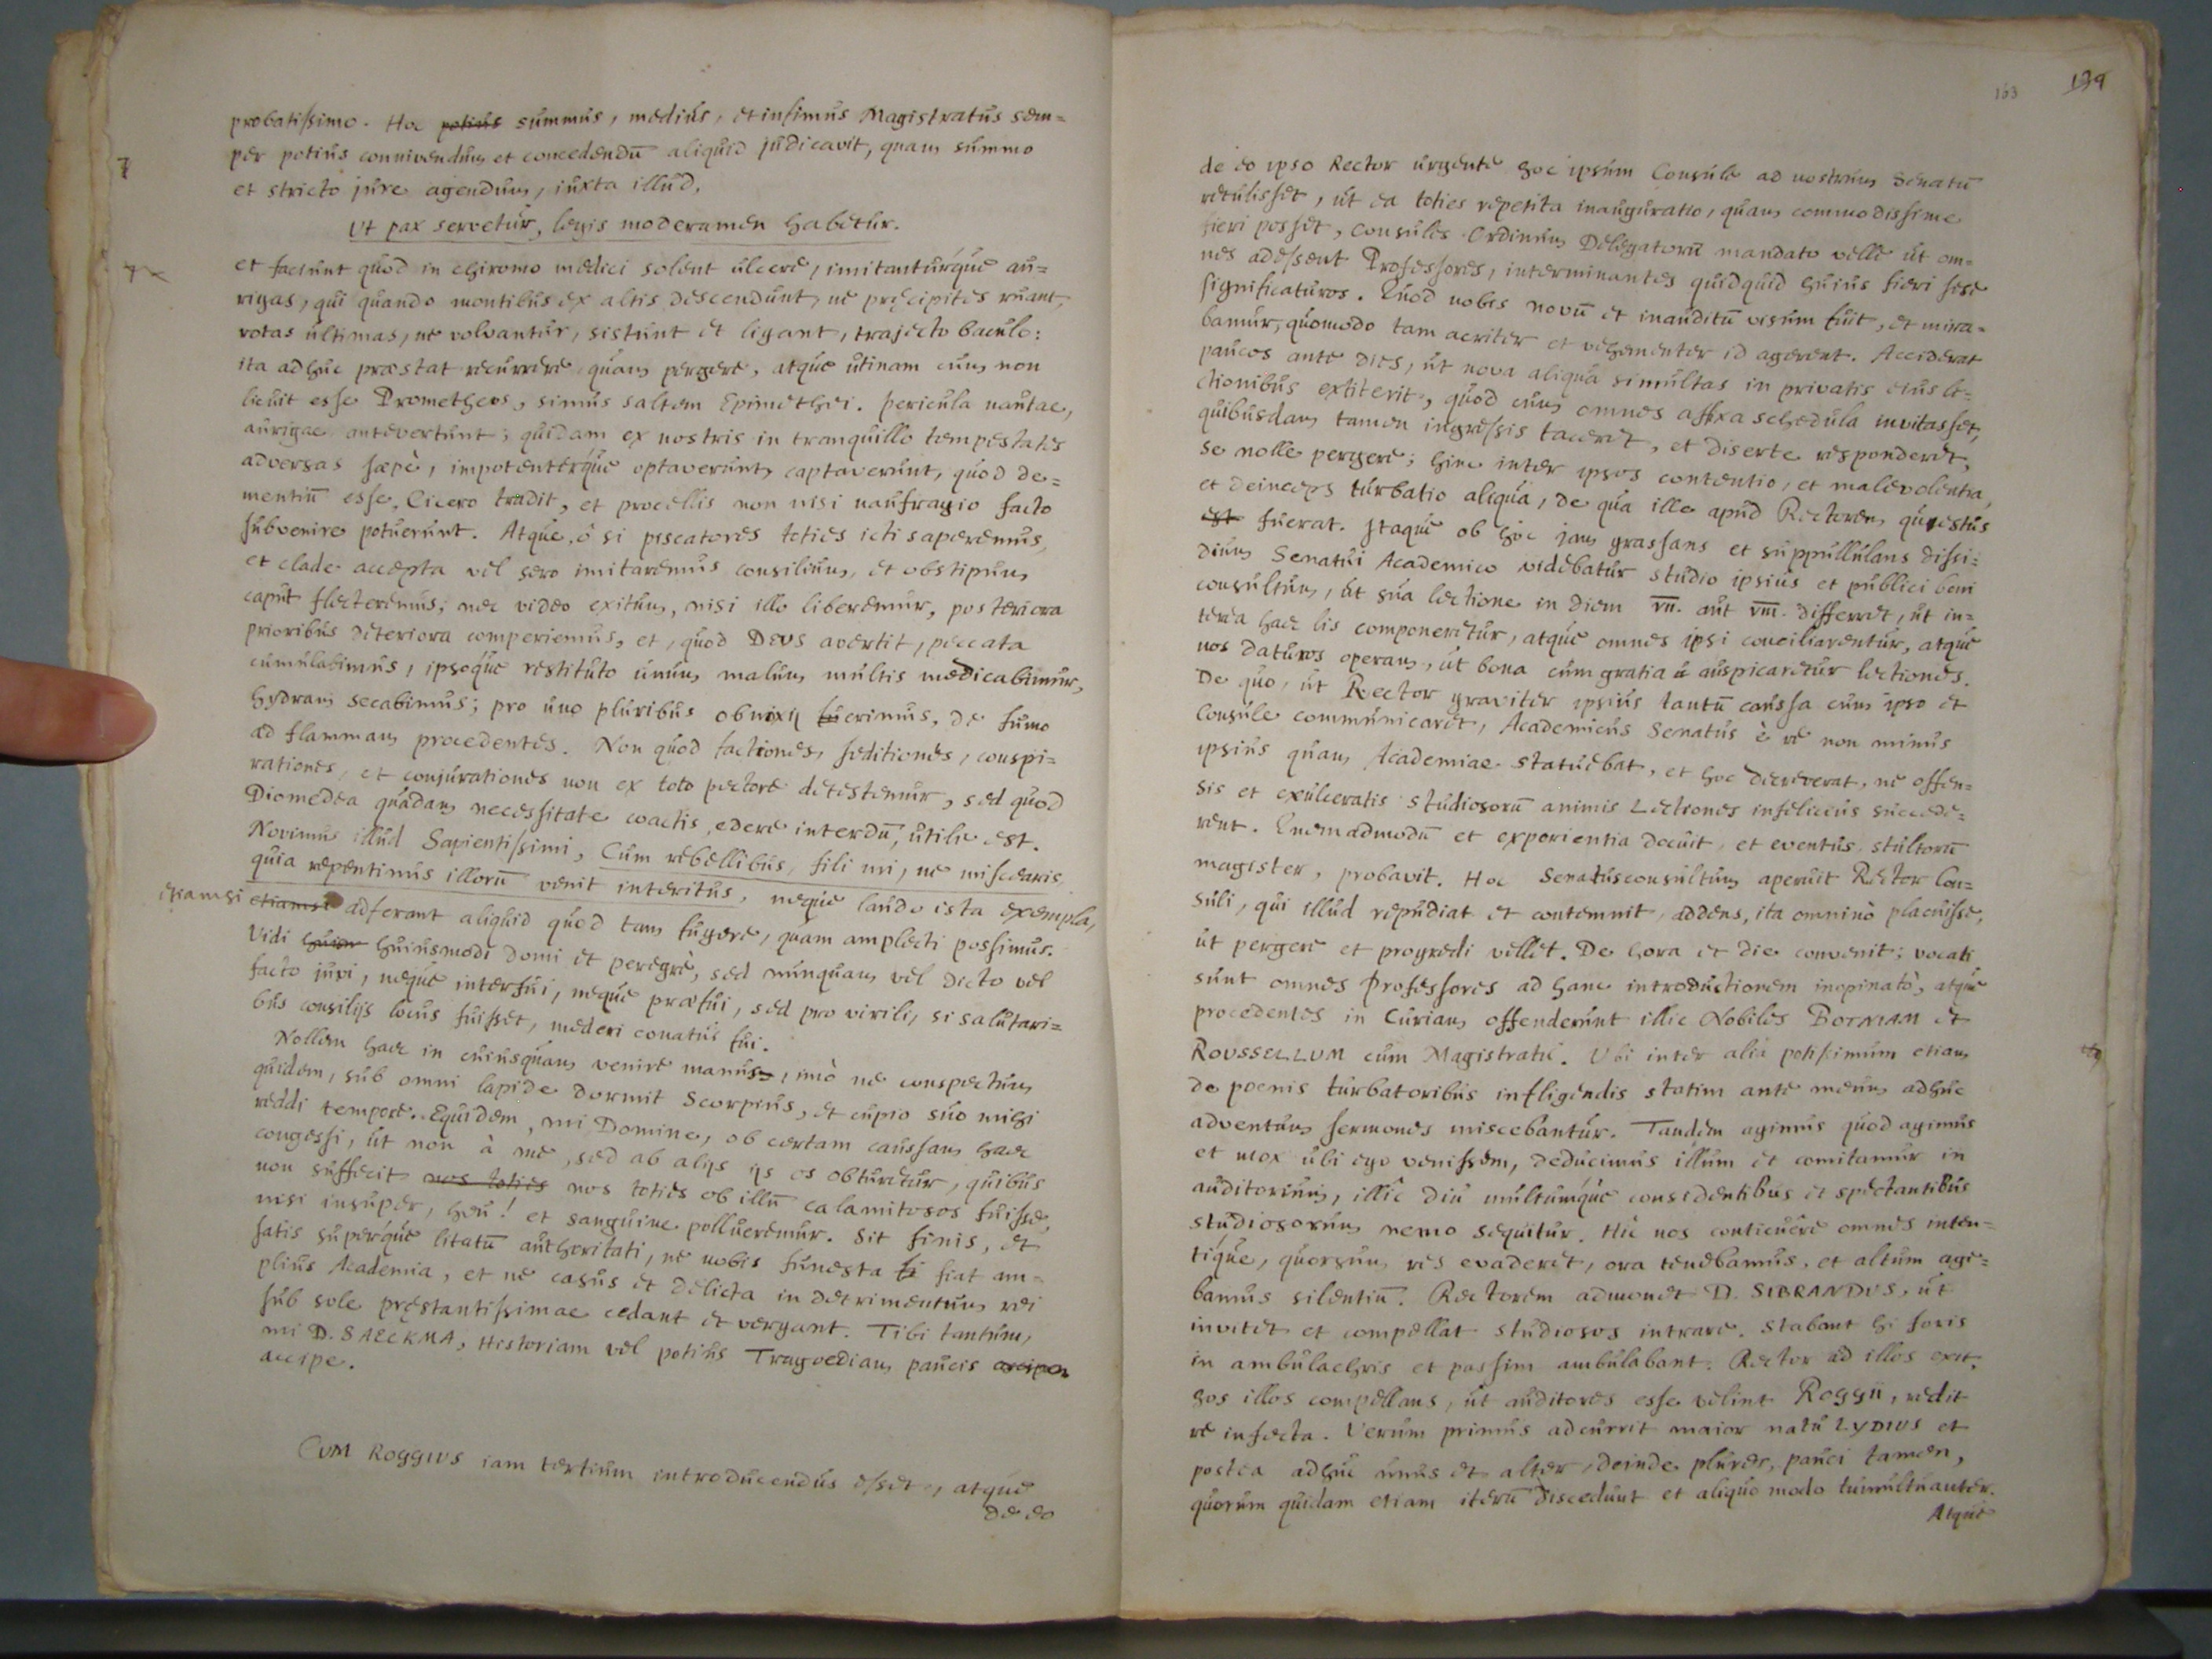 probatissimo. Hoc potius summus, medius, et infimus Magistratus sem=
per potius connivendum et concedendū aliquid judicavit, quam summo
et stricto jure agendum, iuxta illud,
Ut pax servetur, legis moderamen habetur.
et faciunt quod in chiromo medici solent ulcere, imitanturque au=
rigas, qui quando montibus ex altis descendunt, ne pręcipites ruant,
rotas ultimas, ne volvantur, sistunt et ligant, trajecto baculo:
ita adhuc præstat recurrere quam pergere, atque utinam cum non
licuit esse Prometheos, simus saltem Epimethei. pericula nautae,
aurigae antevertunt; quidam ex nostris in tranquillo tempestates
adversas sæpè, impotenterque optaverunt, captaverunt, quod de=
mentiū esse, Cicero tradit, et procellis non nisi naufragio facto
subvenire potuerunt. Atque, ô si piscatores toties icti saperemus,
et clade accepta vel sero imitaremus consilium, et obstipum
caput flecteremus; nec video exitum, nisi illo liberemur, posteriora
prioribus deteriora comperiemus, et, quod DEUS avertit, peccata
cumulabimus, ipsoque restituto unum malum multis medicabimur,
hydram secabimus; pro uno pluribus obnixij fuerimus, de fumo
ad flammam procedentes. Non quod factiones, seditiones, conspi=
rationes, et conjurationes non ex toto pectore detestemur, sed quod
Diomedea quadam necessitate coactis, edere interdū, utile est.
Novimus illud Sapientissimi, Cum rebellibus, fili mi, ne miscearis
quia repentinus illorū venit interitus, neque laudo ista exempla,
etiamsi etiamsi adferant aliquid quod tam fugere, quam amplecti possimus.
Vidi huius huiusmodi domi et peregrè, sed nunquam vel dicto vel
facto juvi, neque interfui, neque præfui, sed pro virili, si salutari=
bus consilijs locus fuisset, mederi conatus fui.
Nollem haec in cuiusquam venire manus, imò ne conspectum
quidem, sub omni lapide dormit Scorpius, et cupio suo mihi
reddi tempore. Equidem, mi Domine, ob certam caussam haec
congessi, ut non à me, sed ab alijs ijs os obturetur, quibus
non suffecit nos toties nos toties ob illū calamitosos fuisse,
nisi insuper, heu! et sanguine pollueremur. Sit finis, et
satis superque litatū authoritati, ne nobis funesta fi fiat am=
plius Academia, et ne casus et delicta in detrimentum rei
sub sole pręstantissimae cedant et vergant. Tibi tantum,
mi D. SAECKMA, Historiam vel potius Tragoediam paucis accipe
accipe.
CUM ROGGIUS iam tertium introducendus esset, atque
de eo
163 139
de eo ipso Rector urgente hoc ipsum Consule ad nostrum Senatū
retulisset, ut ea toties repetita inauguratio, quam commodissime
fieri posset, Consules Ordinum Delegatorū mandato velle ut om=
nes adessent Professores, interminantes quidquid huius fieri sese
significaturos. Quod nobis novū et inauditū visum fuit, et mira=
bamur, quomodo tam acriter et vehementer id agerent. Acciderat
paucos ante dies, ut nova aliqua simultas in privatis eius le=
ctionibus extiterit, quod cum omnes affixa schedula invitasset,
quibusdam tamen ingressis taceret, et diserte responderet,
se nolle pergere; hinc inter ipsos contentio, et malevolentia,
et deinceps turbatio aliqua, de qua ille apud Rectorem questus
est fuerat. Itaque ob hoc jam grassans et suppullulans dissi=
dium Senatui Academico videbatur studio ipsius et publici boni
consultum, ut sua lectione in diem VII. aut VIII. differret, ut in=
terea haec lis componeretur, atque omnes ipsi conciliarentur, atque
nos daturos operam, ut bona cum gratia auspicaretur lectiones.
De quo, ut Rector graviter ipsius tantū caussa cum ipso et
Consule communicaret, Academicus Senatus è re non minus
ipsius quam Academiae statuebat, et hoc decreverat, ne offen=
sis et exulceratis studiosorū animis Lectiones infelicius succede=
rent. Quemadmodū et experientia docuit, et eventus, stultorū
magister, probavit. Hoc Senatusconsultum aperuit Rector Con=
suli, qui illud repudiat et contemnit, addens, ita omninò placuisse,
ut pergere et progredi vellet. De hora et die convenit; vocati
sunt omnes Professores ad hanc introductionem inopinatò, atque
procedentes in Curiam offenderunt illic Nobiles BOTNIAM et
ROUSSELLUM cum Magistratu. Ubi inter alia potissimum etiam
de poenis turbatoribus infligendis statim ante meum adhuc
adventum sermones miscebantur. Tandem agimus quod agimus
et mox ubi ego venissem, deducimus illum et comitamur in
auditorium, illîc diu multumque considentibus et spectantibus
studiosorum nemo sequitur. Hic nos conticuêre omnes inten=
tique, quorsum res evaderet, ora tenebamus, et altum age=
bamus silentiū. Rectorem admonet D. SIBRANDUS, ut
invitet et compellat studiosos intrare. Stabant hi foris
in ambulachris et passim ambulabant. Rector ad illos exit,
hos illos compellans, ut auditores esse velint ROGGII, redit
re infecta. Verum primus adcurrit maior natu LYDIUS et
postea adhuc unus et alter, deinde plures, pauci tamen,
quorum quidam etiam iterū discedunt et aliquo modo tumultuanter.
Atque